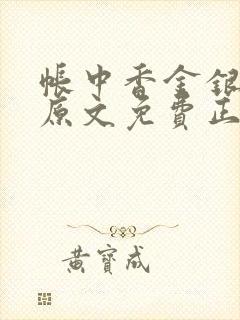 帳中香金銀
原文免費正
黃寶成